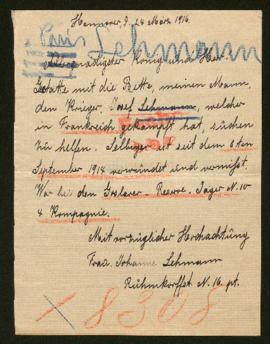 Hannover, d. 24 März 1916.
Lehmann
Allergnädigster König und Herr
Gestatte mir die Bitte, meinen Mann,
den Krieger Josef Lehmann, welcher
in Frankreich gekämpft hat, suchen
zu helfen. Selbiger ist seit dem 8ten
September 1914 verwundet und vermisst.
War bei den Goslarer Reserve Jäger N. 10
4 Kompagnie.
Mit vorzüglicher Hochachtung
Frau Johanne Lehmann
Rühmkorffst. N. 16. pt.
8308